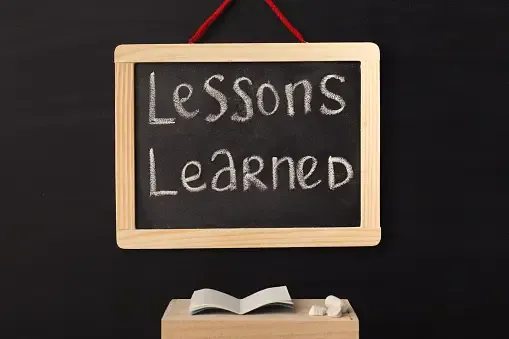 Lessons
Learned